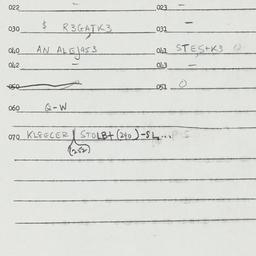 022 – 023 –
030 $ R3GATK3 031 –
040 AN ALEJA53 041 STESTK3 0
042 – 043 –
050 051 0
060 Q-W
070 KLEECER STOLB+(240)-SL...
(252)